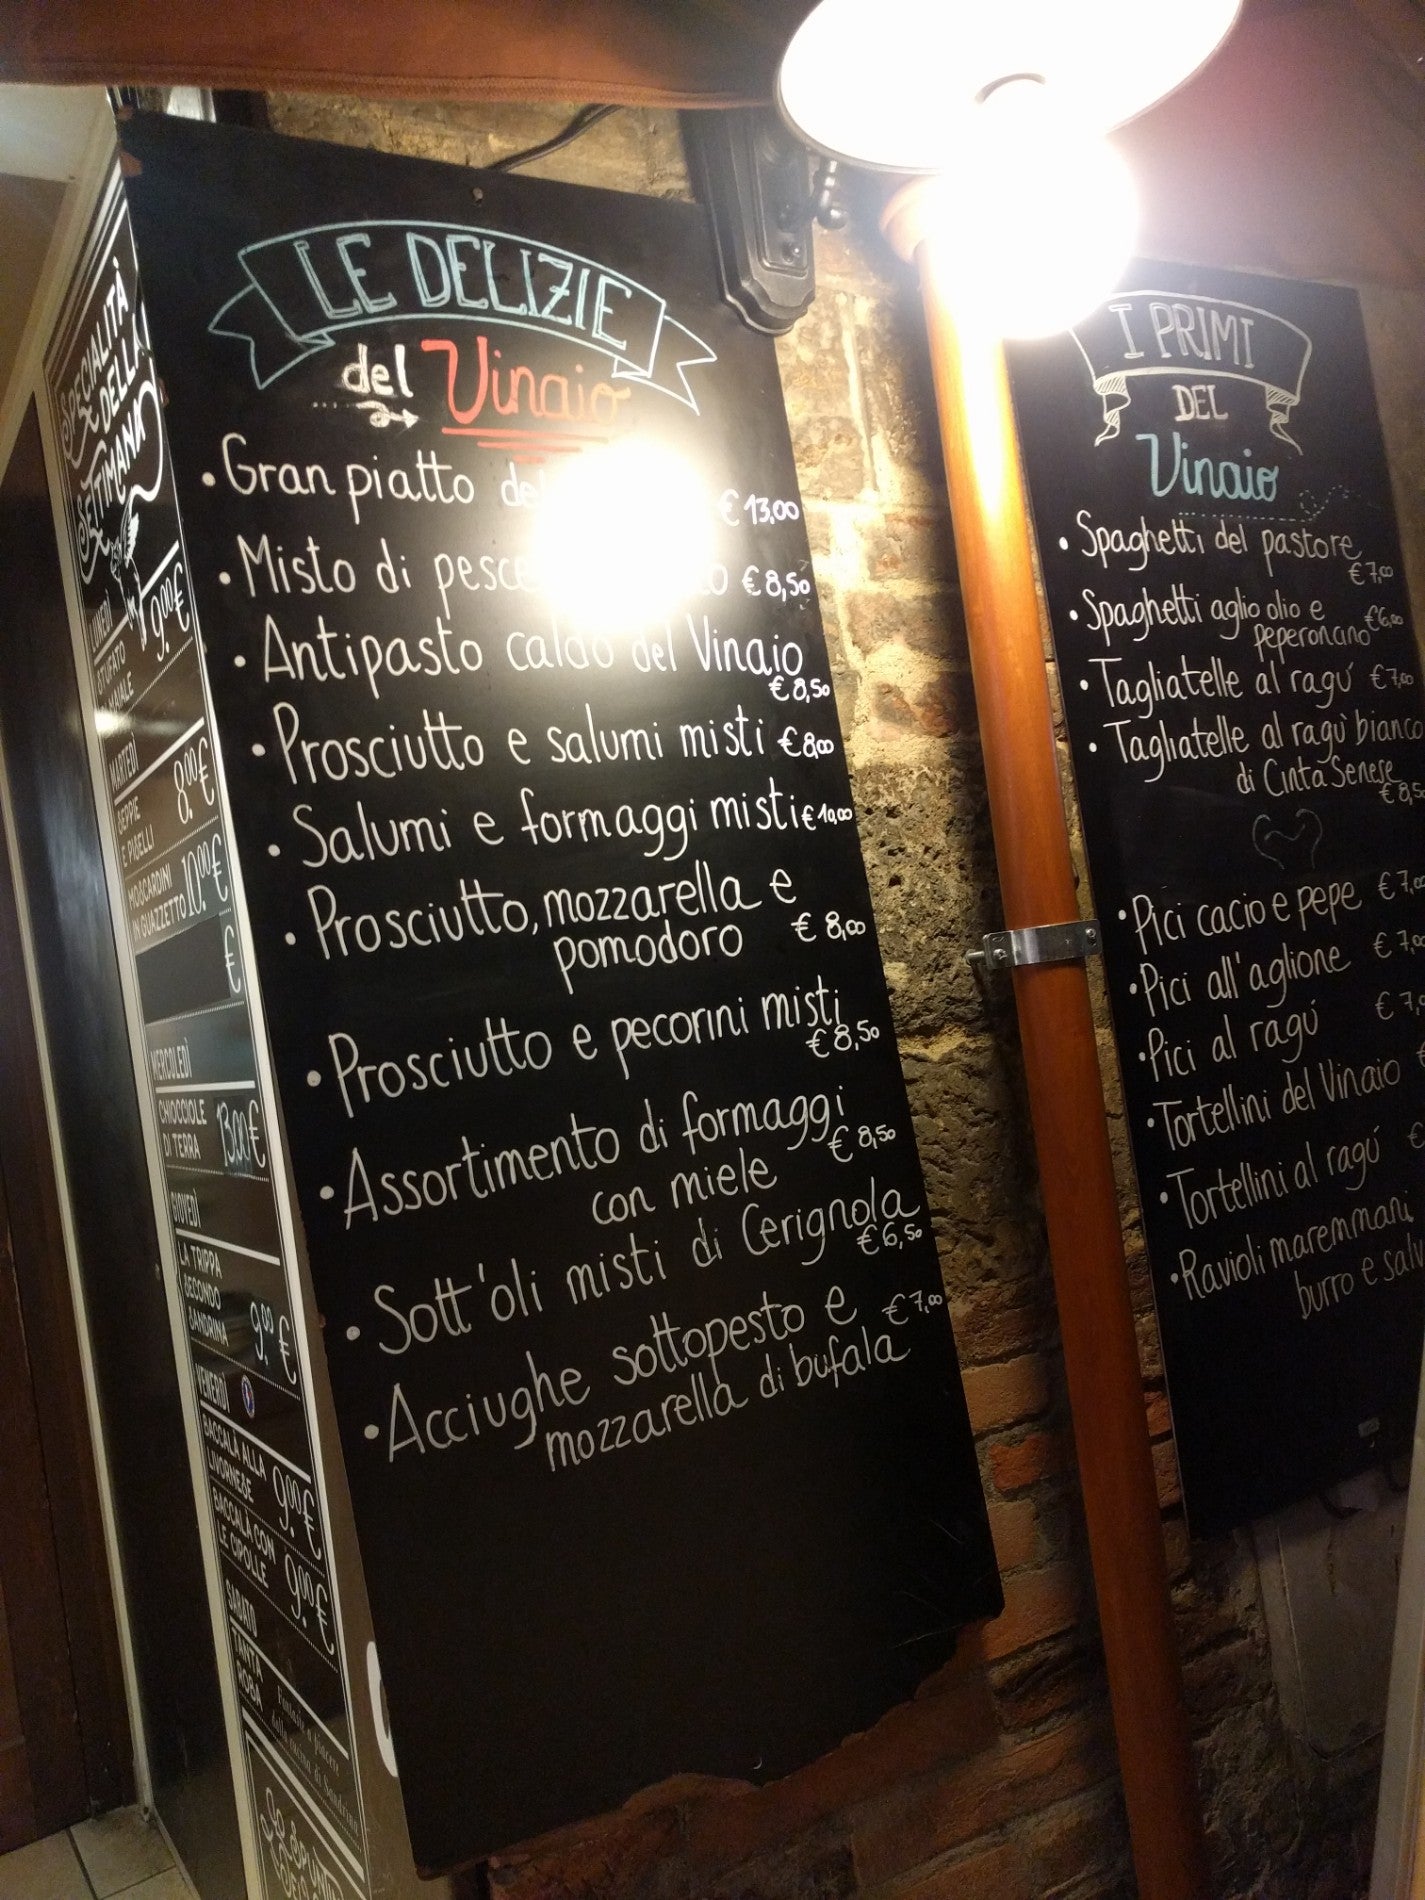 SPECIALITÀ
DELLA
SETTIMANA
LUNEDÌ
STUFATO
9.00€
MARTEDÌ
SEPPIE
E PISELLI
8.00€
MOSCARDINI
IN GUAZZETTO
10.00€
€
MERCOLEDÌ
CHIOCCIOLE
DI TERRA
13.00€
GIOVEDÌ
LA TRIPPA
SECONDO
SANDRINA
9.00€
VENERDÌ
BACCALÀ ALLA
LIVORNESE
9.00€
BACCALÀ CON
LE CIPOLLE
9.00€
SABATO
TANTA
ROBA
LE DELIZIE
del Vinaio
• Gran piatto € 13,00
• Misto di pesce € 8,50
• Antipasto caldo del Vinaio
€ 8,50
• Prosciutto e salumi misti € 8,00
• Salumi e formaggi misti € 10,00
• Prosciutto, mozzarella e
pomodoro € 8,00
• Prosciutto e pecorini misti
€ 8,50
• Assortimento di formaggi
con miele € 8,50
• Sott'oli misti di Cerignola
€ 6,50
• Acciughe sottopesto e € 7,00
mozzarella di bufala
I PRIMI
DEL
Vinaio
• Spaghetti del pastore
€ 7,00
• Spaghetti aglio olio e
peperoncino € 6,00
• Tagliatelle al ragú € 7,00
• Tagliatelle al ragù bianco
di Cinta Senese
€ 8,50
• Pici cacio e pepe € 7,00
• Pici all'aglione € 7,0
• Pici al ragú € 7,
• Tortellini del Vinaio €
• Tortellini al ragú €
• Ravioli maremmani
burro e salv